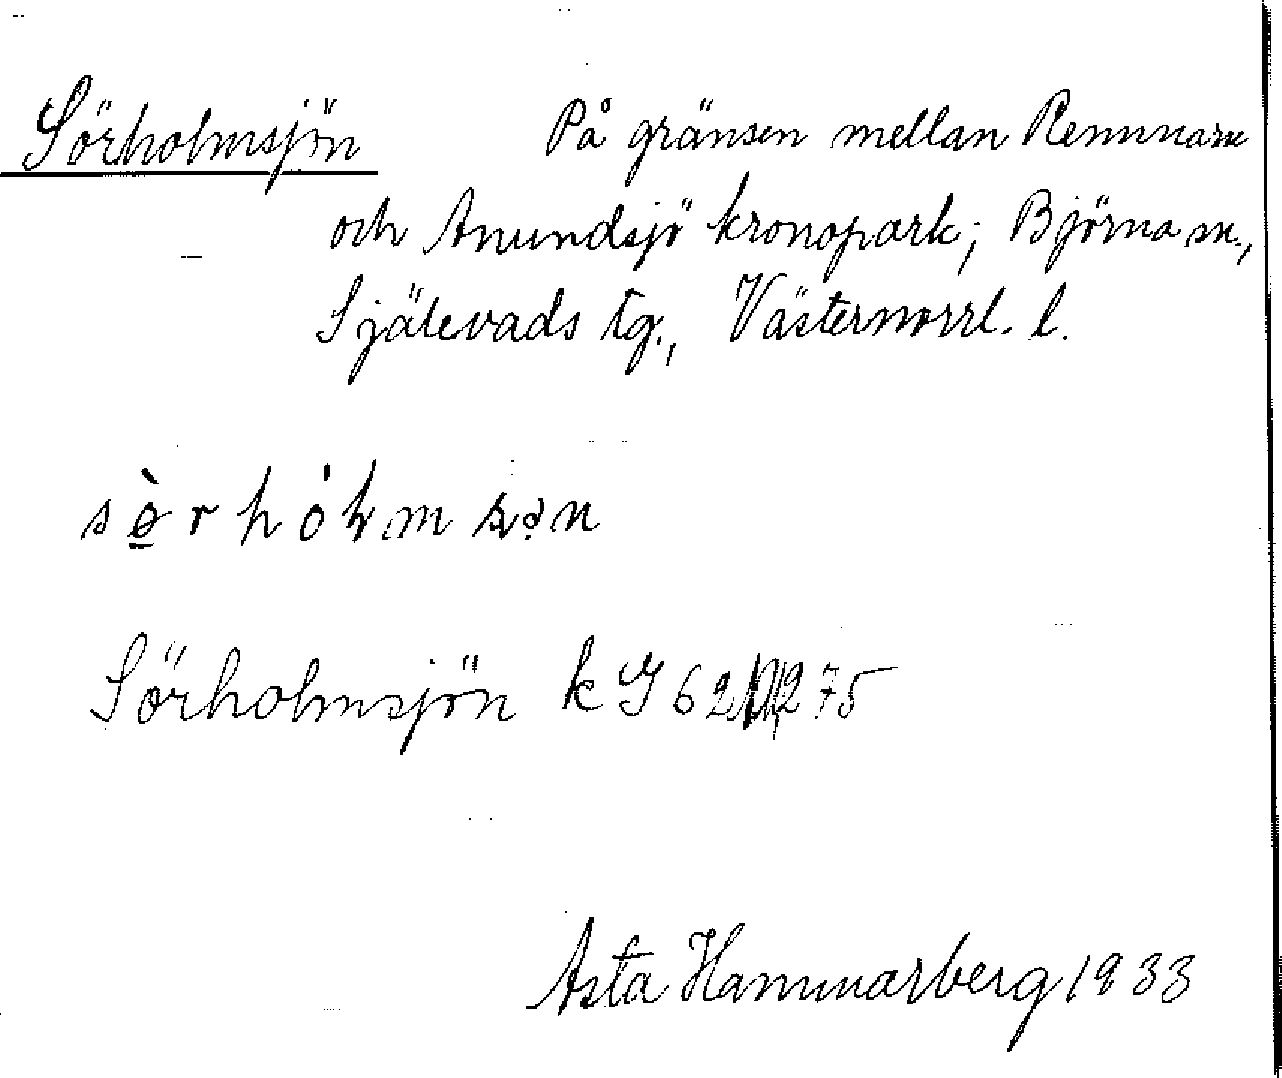 Sörholmsjön På gränsen mellan Remmarn
och Anundsjö kronopark; Björna sn.,
Själevads tg., Västernorrl. l.
sø̀rhólmsən
Sörholmsjön k G 62 275
Asta Hammarberg 1933